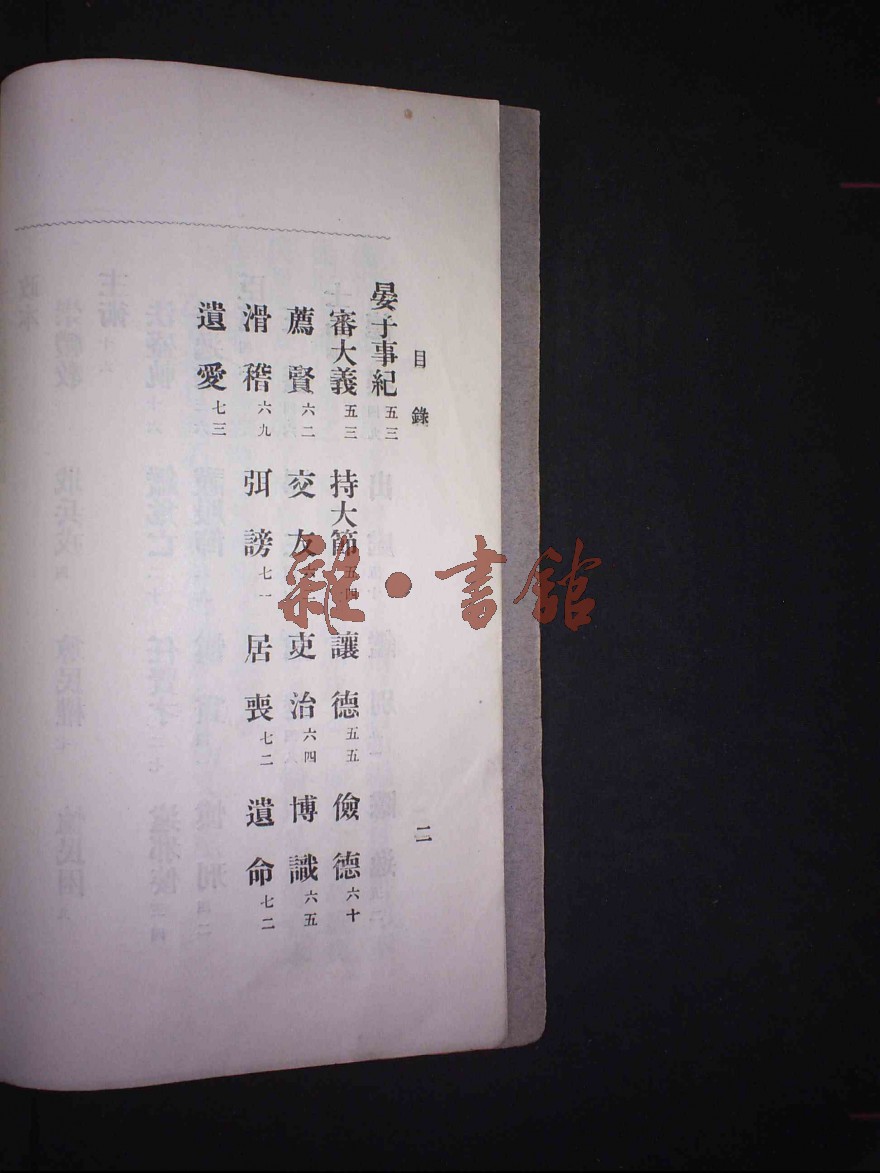 目錄
二
晏子事紀五三
審大義五三 持大節五四 讓德五五 儉德六十
薦賢六二 交友六 吏治六四 博識六五
滑稽六九 弭謗七一 居喪七二 遺命七二
遺愛七三
雜·書館